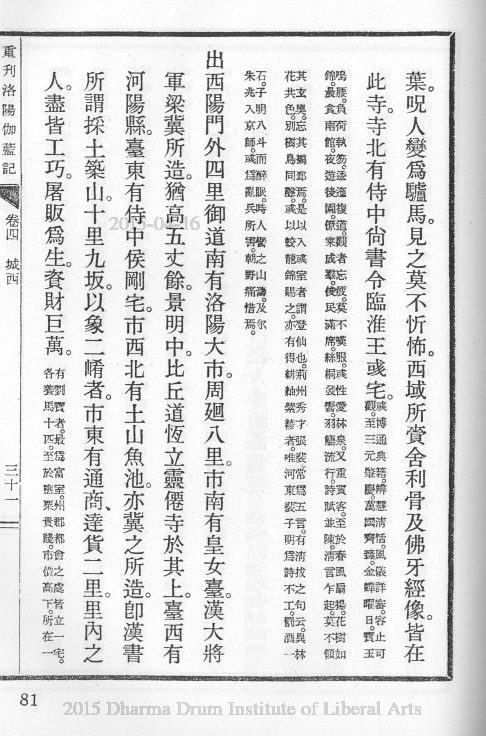 葉。呪人變爲驢馬。見之莫不忻怖。西域所賫舍利骨及佛牙經像。皆在
此寺。寺北有侍中尙書令臨淮王彧宅。
彧博通典籍。辨慧淸恬。風儀詳審。容止可
觀。至三元肇慶。萬國齊臻。金蟬曜日。寶玉
鳴腰。負荷執笏。逶迤複道。觀者忘疲。莫不嘆服。彧性愛林泉。又重賓客。至於春風扇揚。花樹如
錦。晨食南館。夜遊後園。僚寀成羣。俊民滿席。絲桐發響。羽觴流行。詩賦並陳。淸言乍起。莫不領
其玄奧。忘其褊郄焉。是以入彧室者謂登仙也。荊州秀才張裴常爲五言。有淸拔之句云。異林
花共色。別樹鳥同聲。彧以蛟龍錦賜之。亦有得緋紬紫綾者。唯河東裴子明爲詩不工。罰酒一
石。子明八斗而醉眠。時人譬之山濤。及尔
朱兆入京師。彧爲亂兵所害。朝野痛惜焉。
出西陽門外四里御道南有洛陽大市。周迴八里。市南有皇女臺。漢大將
軍梁冀所造。猶高五丈餘。景明中。比丘道恆立靈僊寺於其上。臺西有
河陽縣。臺東有侍中侯剛宅。市西北有土山魚池。亦冀之所造。卽漢書
所謂採土築山。十里九坂。以象二崤者。市東有通商、達貨二里。里內之
人。盡皆工巧。屠販爲生。資財巨萬。
有劉寶者。最爲富室。州郡都會之處。皆立一宅。
各養馬十匹。至於鹽粟貴賤。市價高下。所在一
重刊洛陽伽藍記
卷四 城西
三十一
81
2015-04-16
2015 Dharma Drum Institute of Liberal Arts